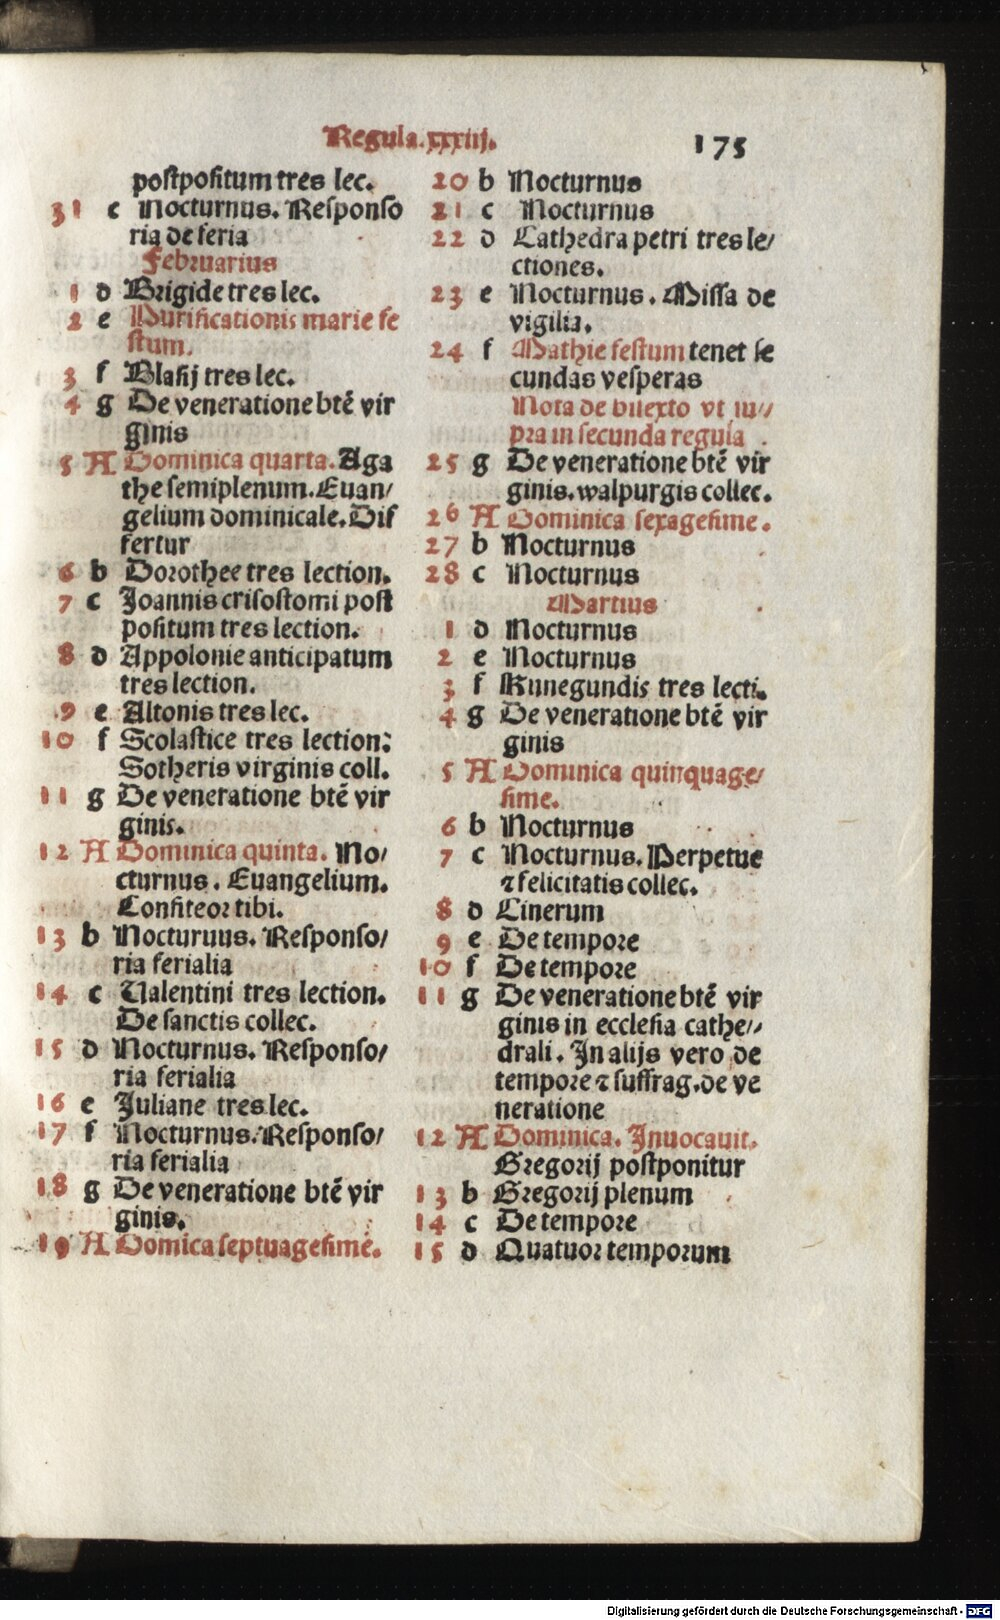 Regula.xxxiij.
175
postpositum tres lec.
31 c Nocturnus. Responso
ria de feria
Februarius
1 d Brigide tres lec.
2 e Purificationis marie fe
stum.
3 f Blasij tres lec.
4 g De veneratione btē vir
ginis
5 A Dominica quarta. Aga
the semiplenum. Euan/
gelium dominicale. Dif
fertur
6 b Dorothee tres lection.
7 c Joannis crisostomi post
positum tres lection.
8 d Appolonie anticipatum
tres lection.
9 e Altonis tres lec.
10 f Scolastice tres lection:
Sotheris virginis coll.
11 g De veneratione btē vir
ginis.
12 A Dominica quinta. No/
cturnus. Euangelium.
Confiteor tibi.
13 b Nocturuus. Responso/
ria ferialia
14 c Ualentini tres lection.
De sanctis collec.
15 d Nocturnus. Responso/
ria ferialia
16 e Juliane tres lec.
17 f Nocturnus. Responso/
ria ferialia
18 g De veneratione btē vir
ginis.
19 A Domica septuagesime.
20 b Nocturnus
21 c Nocturnus
22 d Cathedra petri tres le/
ctiones.
23 e Nocturnus. Missa de
vigilia.
24 f Mathie festum tenet se
cundas vesperas
Nota de bisexto vt su//
pra in secunda regula
25 g De veneratione btē vir
ginis. walpurgis collec.
26 A Dominica sexagesime.
27 b Nocturnus
28 c Nocturnus
Martius
1 d Nocturnus
2 e Nocturnus
3 f Kunegundis tres lecti.
4 g De veneratione btē vir
ginis
5 A Dominica quinquage/
sime.
6 b Nocturnus
7 c Nocturnus. Perpetue
⁊ felicitatis collec.
8 d Cinerum
9 e De tempore
10 f De tempore
11 g De veneratione btē vir
ginis in ecclesia cathe//
drali. In alijs vero de
tempore ⁊ suffrag. de ve
neratione
12 A Dominica. Inuocauit.
Gregorij postponitur
13 b Gregorij plenum
14 c De tempore
15 d Quatuor temporum
Digitalisierung gefördert durch die Deutsche Forschungsgemeinschaft - DFG